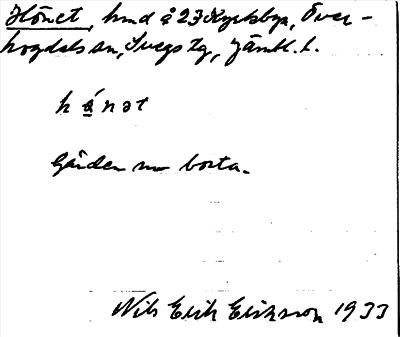 Hönet, hmd å 23 Kyrkbyn, Över-
hogdals sn, Svegs tg, Jämtl. l.
hǻnət
Gården nu borta.
Nils Erik Eriksson 1933